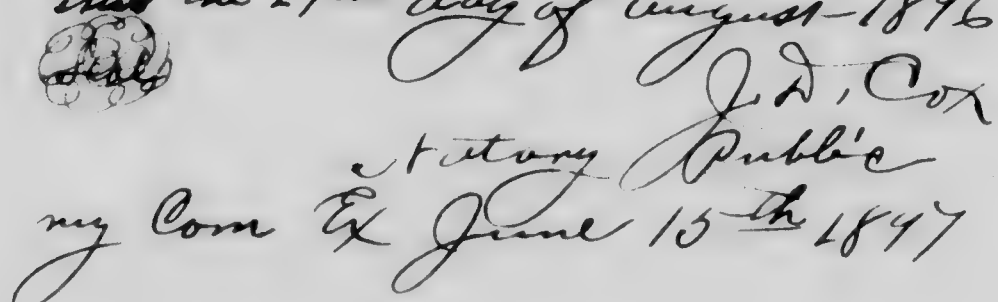 this the 29th day of August - 1896
Seal
J. D. Cox
Notary Public
my Com Ex June 15th 1897